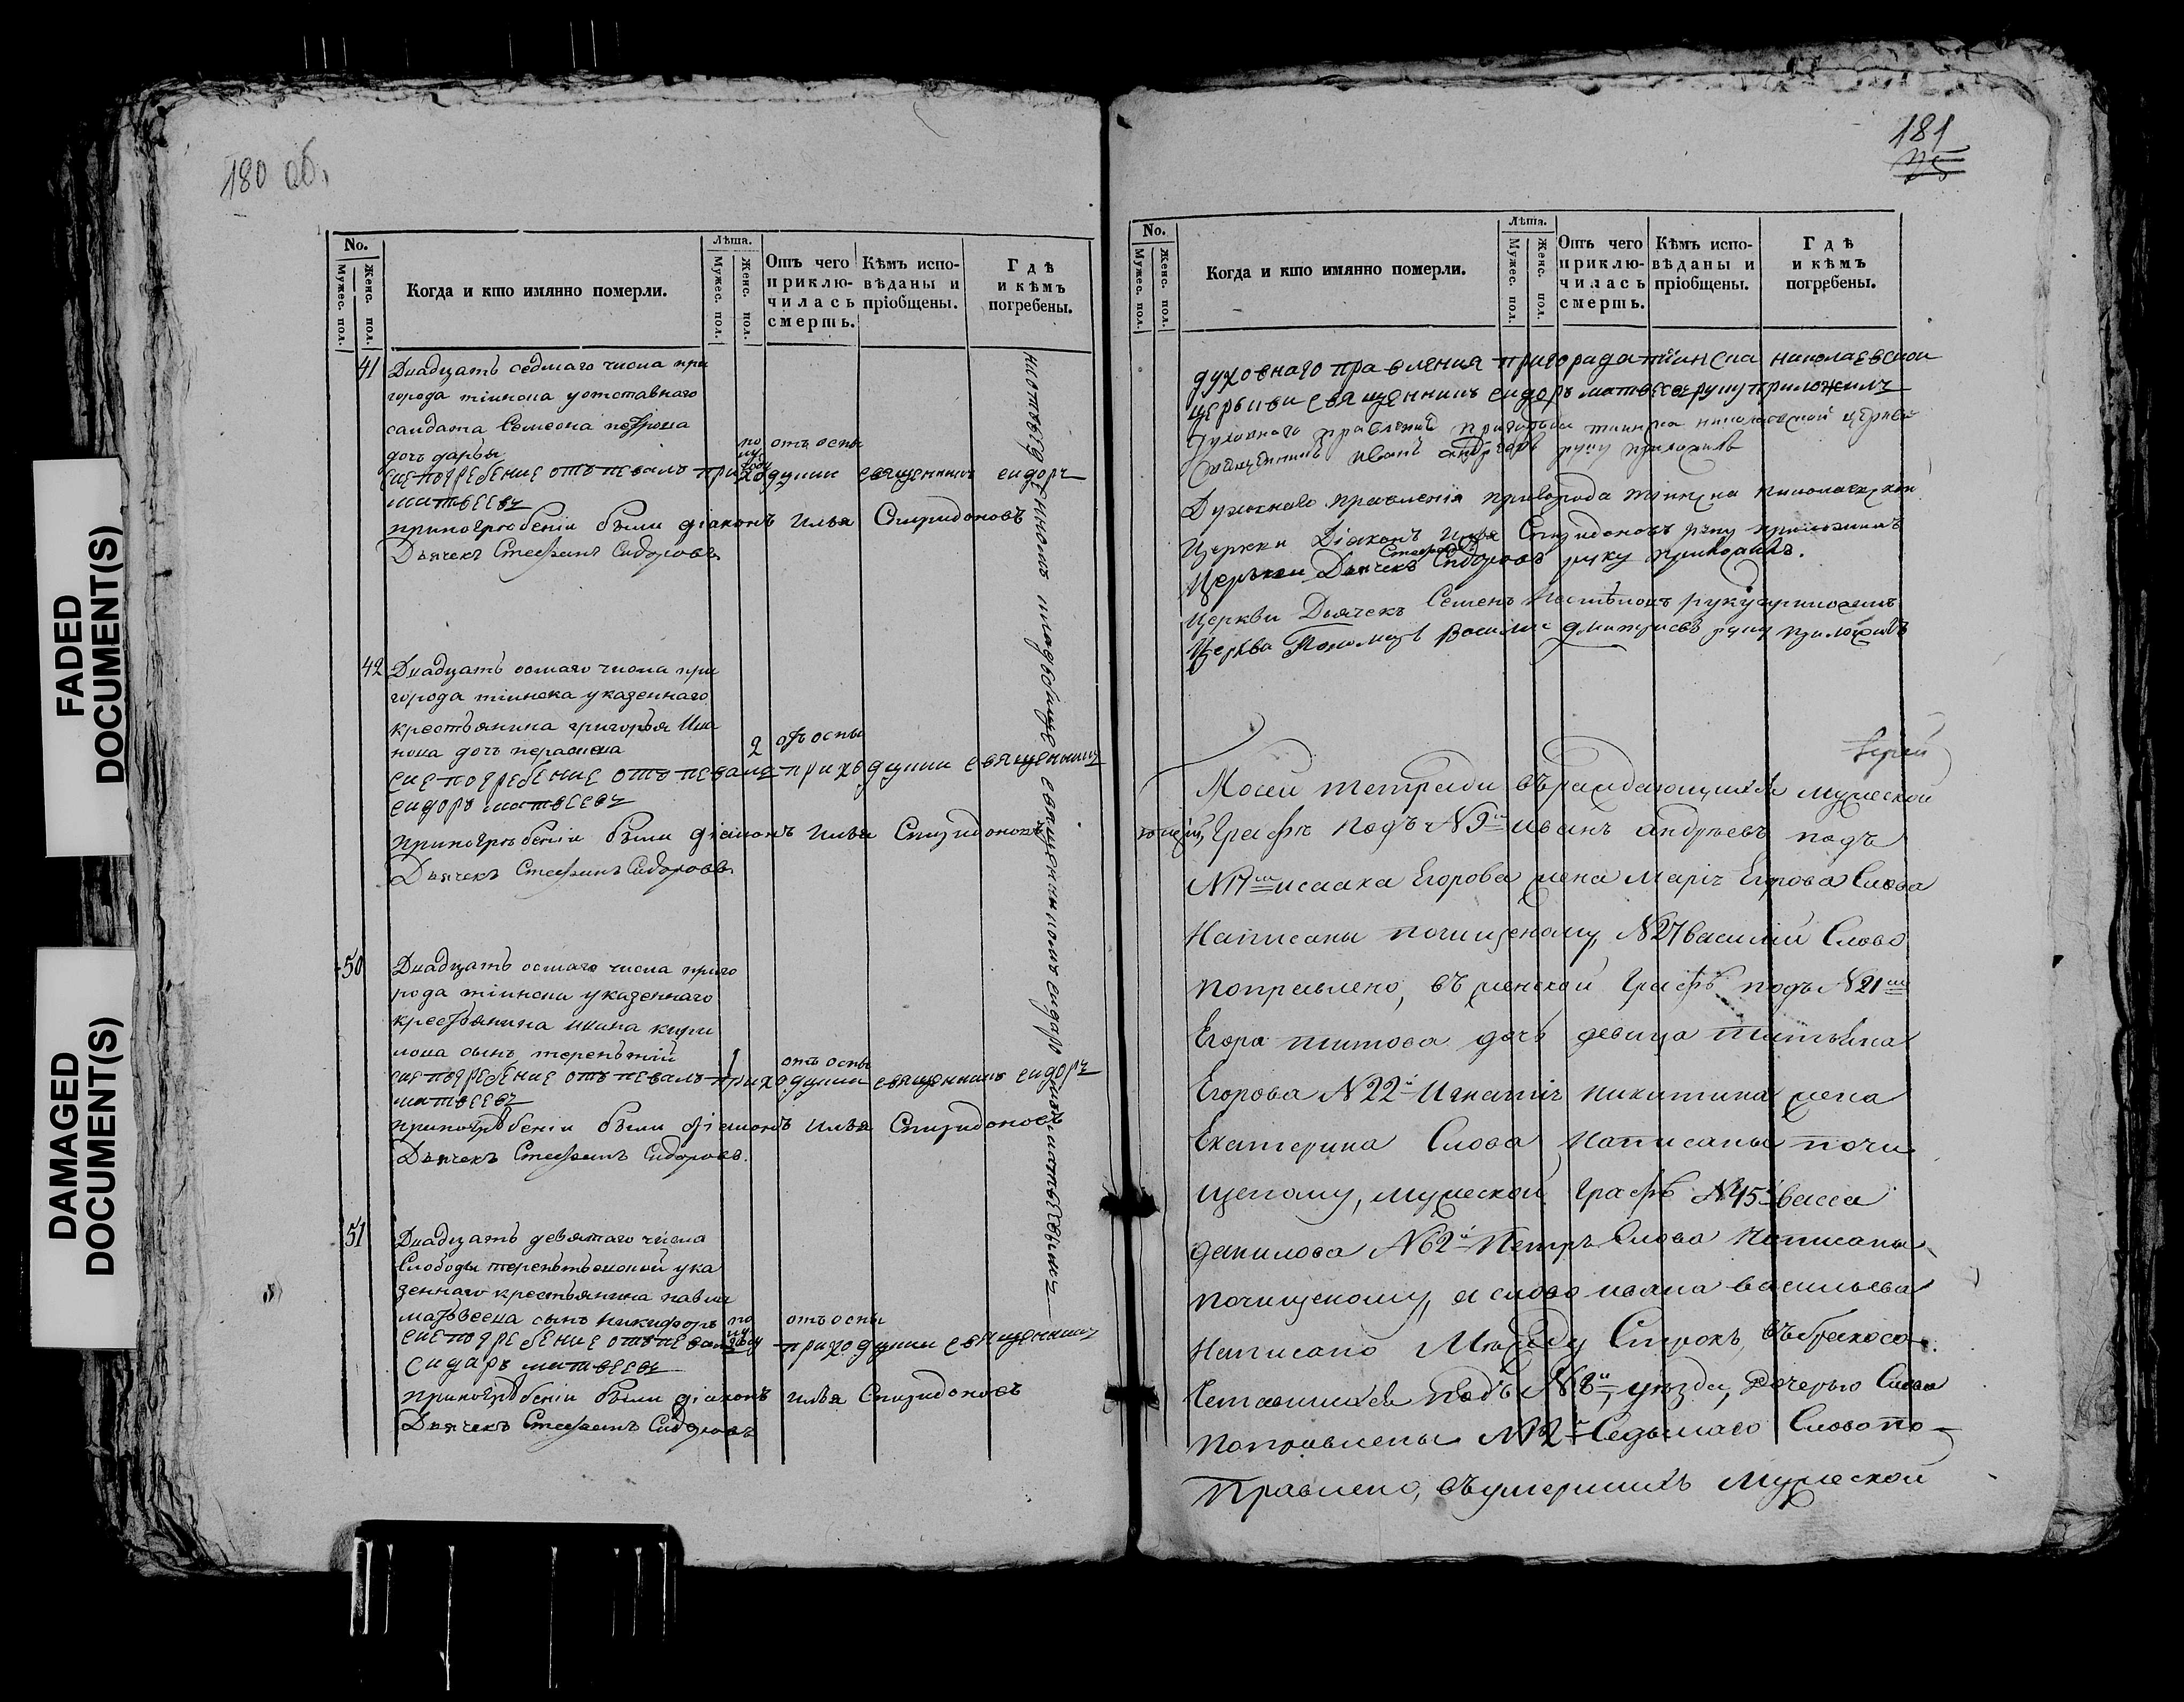 180 об.
No.
Мужес. пол.
Женс. пол.
Когда и кто имянно померли.
Лѣта.
Мужес. пол.
Женс. пол.
Отъ чего приклю-чилась смерть.
Кѣмъ испо-вѣданы и пріобщены.
Гдѣ и кѣмъ погребены.
41 Двадцать седмаго числа при
города тіинска уотставнаго
салдата Семиона петрова
дочь дарья по лу году отъ оспы
сие погребение отъ певалъ приходцкии священникъ сидоръ
матвеевъ
припогребеніи были діаконъ Илья Спиридоновъ
Дьячекъ Стефанъ Сидоровъ
42 Двадцать осмаго числа при
города тіинска указеннаго
крестьянина григорья Ива
нова дочь 2 отъ оспы
сие погребение отъ певалъ приходцкии священникъ
сидоръ матвеевъ
припогребеніи были діаконъ Илья Спиридоновъ
Дьячекъ Стефанъ Сидоровъ
50 Двадцать осмаго числа приго
рода тіинска указеннаго
крестьянина ивана кири
лова сынъ терентий 1 отъ оспы
сие погребение отъ певалъ приходцкии священникъ сидоръ
матвеевъ
припогребеніи были діаконъ Илья Спиридоновъ
Дьячекъ Стефанъ Сидоровъ.
51 Двадцать девятаго числа
Слободы терентьевской ука
зеннаго крестьянина павла
матвеева сынъ никифоръ по лу году отъ оспы
сие погребение отъ певалъ приходцкии священникъ
сидаръ матвеевъ
припогребеніи были діаконъ илья Спиридоновъ
Дьячекъ Стефанъ Сидоровъ
на кладбище священникомъ сидаромъ матвеевымъ
181
No.
Мужес. пол.
Женс. пол.
Когда и кто имянно померли.
Лѣта.
Мужес. пол.
Женс. пол.
Отъ чего приклю-чилась смерть.
Кѣмъ испо-вѣданы и пріобщены.
Гдѣ и кѣмъ погребены.
духовнаго правления пригорада тиинска николаевской
церькви священникъ сидоръ матвеевъ руку приложилъ
Духовнаго правления пригорода тиинска николаевской церкви
священникъ иванъ андреевъ руку приложилъ
Духовнаго правленія пригорода тіинска николаевской
Церкви Діаконъ Илья Спиридоновъ руку приложилъ
Церькви Дьячекъ Стефанъ Сидоровъ руку приложилъ.
Церкви Дьячекъ Семенъ руку приложилъ
Церкви Пономарь Василий дмитриевъ руку приложилъ
В сей тетради въраждающихся мужеской
Графѣ подъ N 9м иванъ андреевъ подъ
N 17м исаака Егорова жена Марія Егорова Слова
Написаны почищеному, N 27 василій Слово
поправлено, въ женской Графѣ подъ N 21м
Егора титова дочь девица татьяна
Егорова N 22й Игнатія никитина жена
Екатерина Слова написаны почи
щеному, мужеской Графѣ N 45й васса
данилова N 62й Петръ Слова Написаны
почищеному, а слово ивана васильева
Написано Между Строкъ, въбракосо-
четавшихся подъ N 8й, уезда, Дочерью Слова
поправлены N 12й Седьмаго Слово по-
правлено, въумершихъ Мужеской
FADED DOCUMENT(S)
DAMAGED DOCUMENT(S)